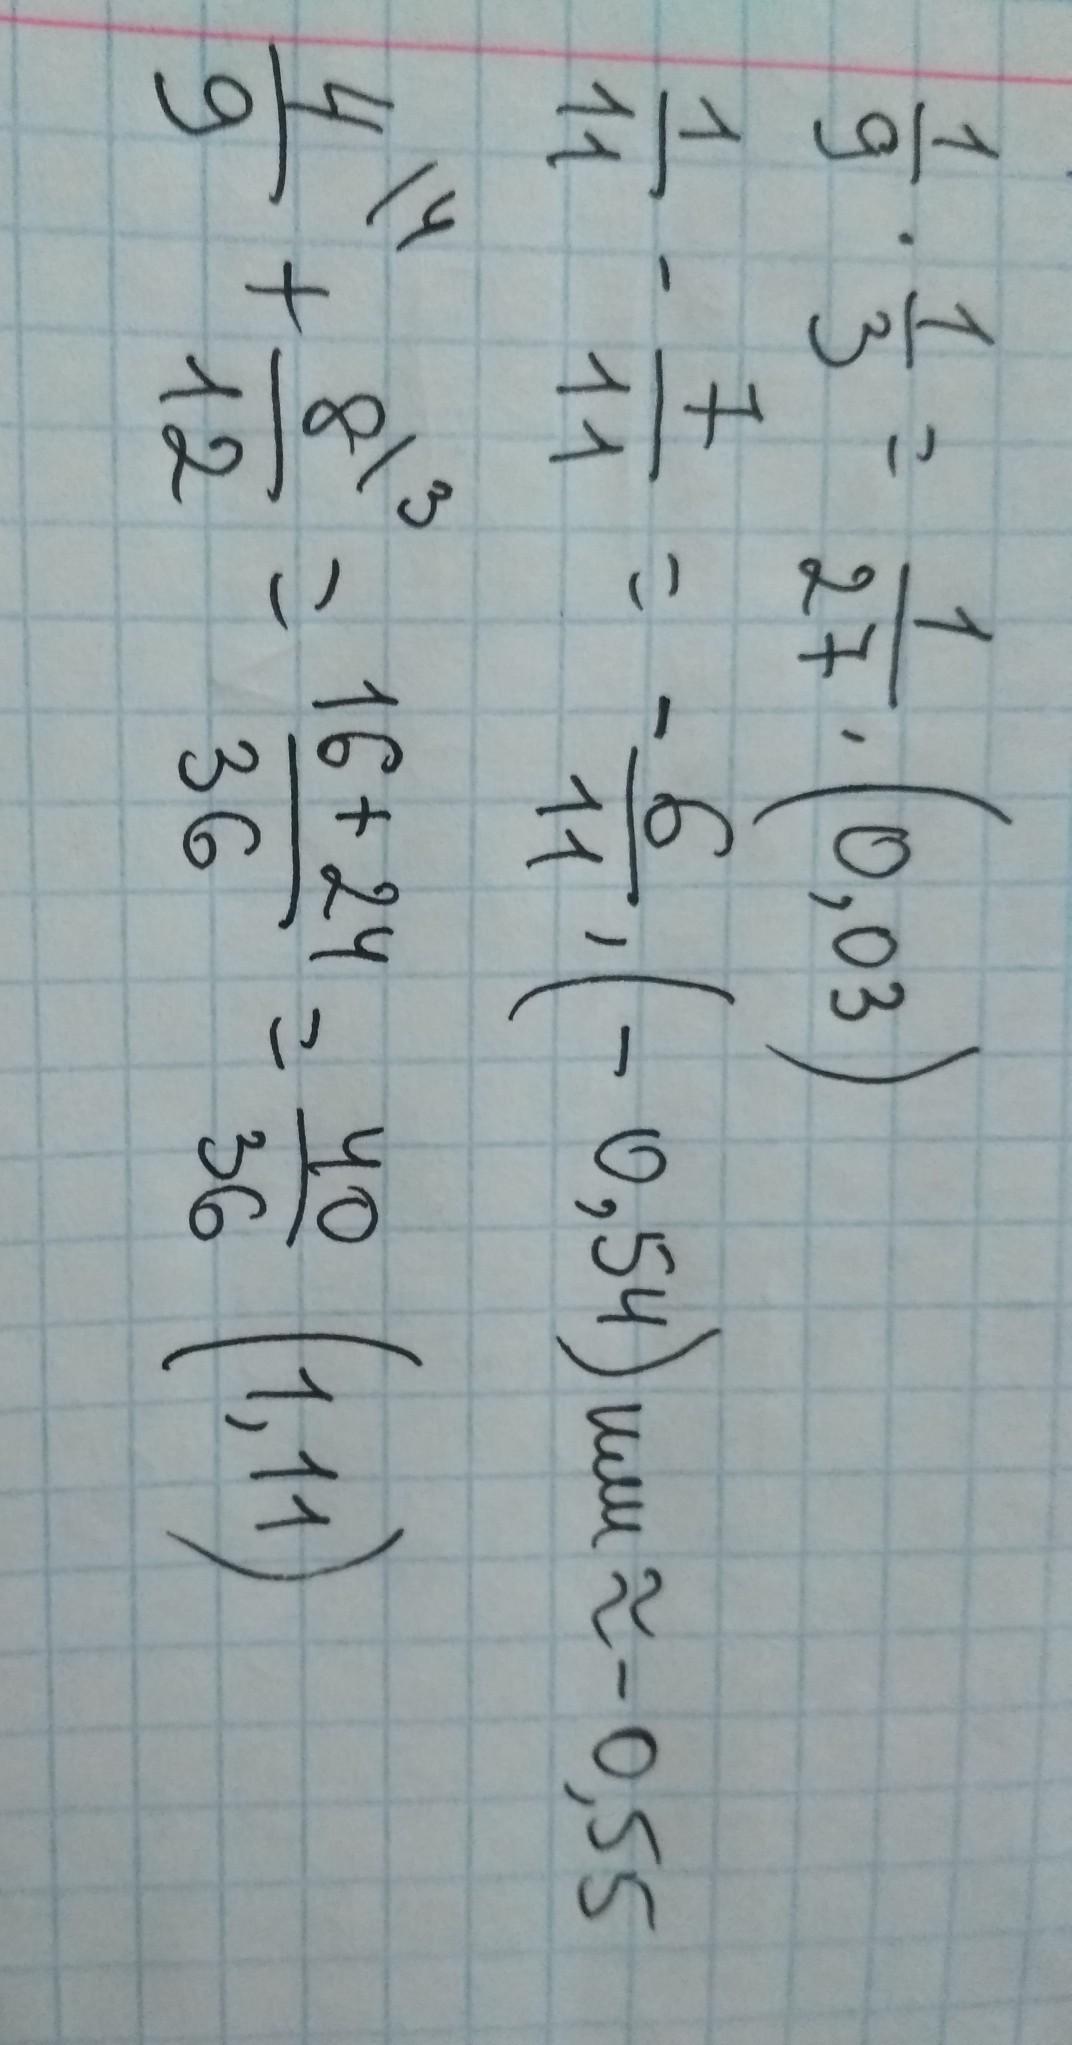 1/9 · 1/3 = 1/27, (0,03)
1/11 - 7/11 = -6/11, (-0,54) или ≈ -0,55
4/9 \4 + 8/12 \3 = 16+24/36 = 40/36 (1,11)